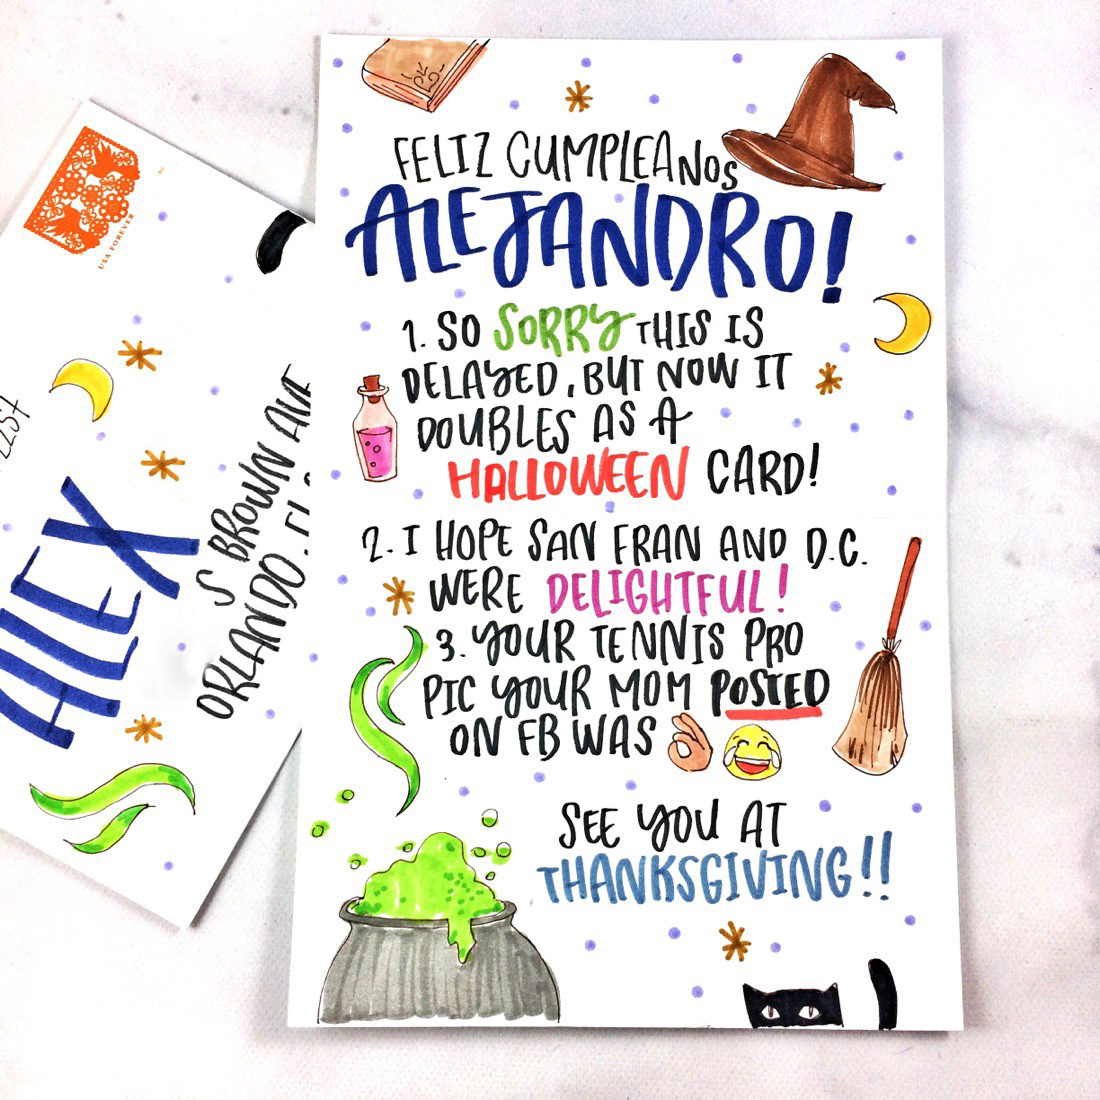 FELIZ CUMPLEANOS
ALEJANDRO!
1. SO SORRY THIS IS
DELAYED, BUT NOW IT
DOUBLES AS A
HALLOWEEN CARD!
2. I HOPE SAN FRAN AND D.C.
WERE DELIGHTFUL!
3. YOUR TENNIS PRO
PIC YOUR MOM POSTED
ON FB WAS 👌 😂
SEE YOU AT
THANKSGIVING!!
USA FOREVER
ALEX
S BROWN AVE
ORLANDO, FL